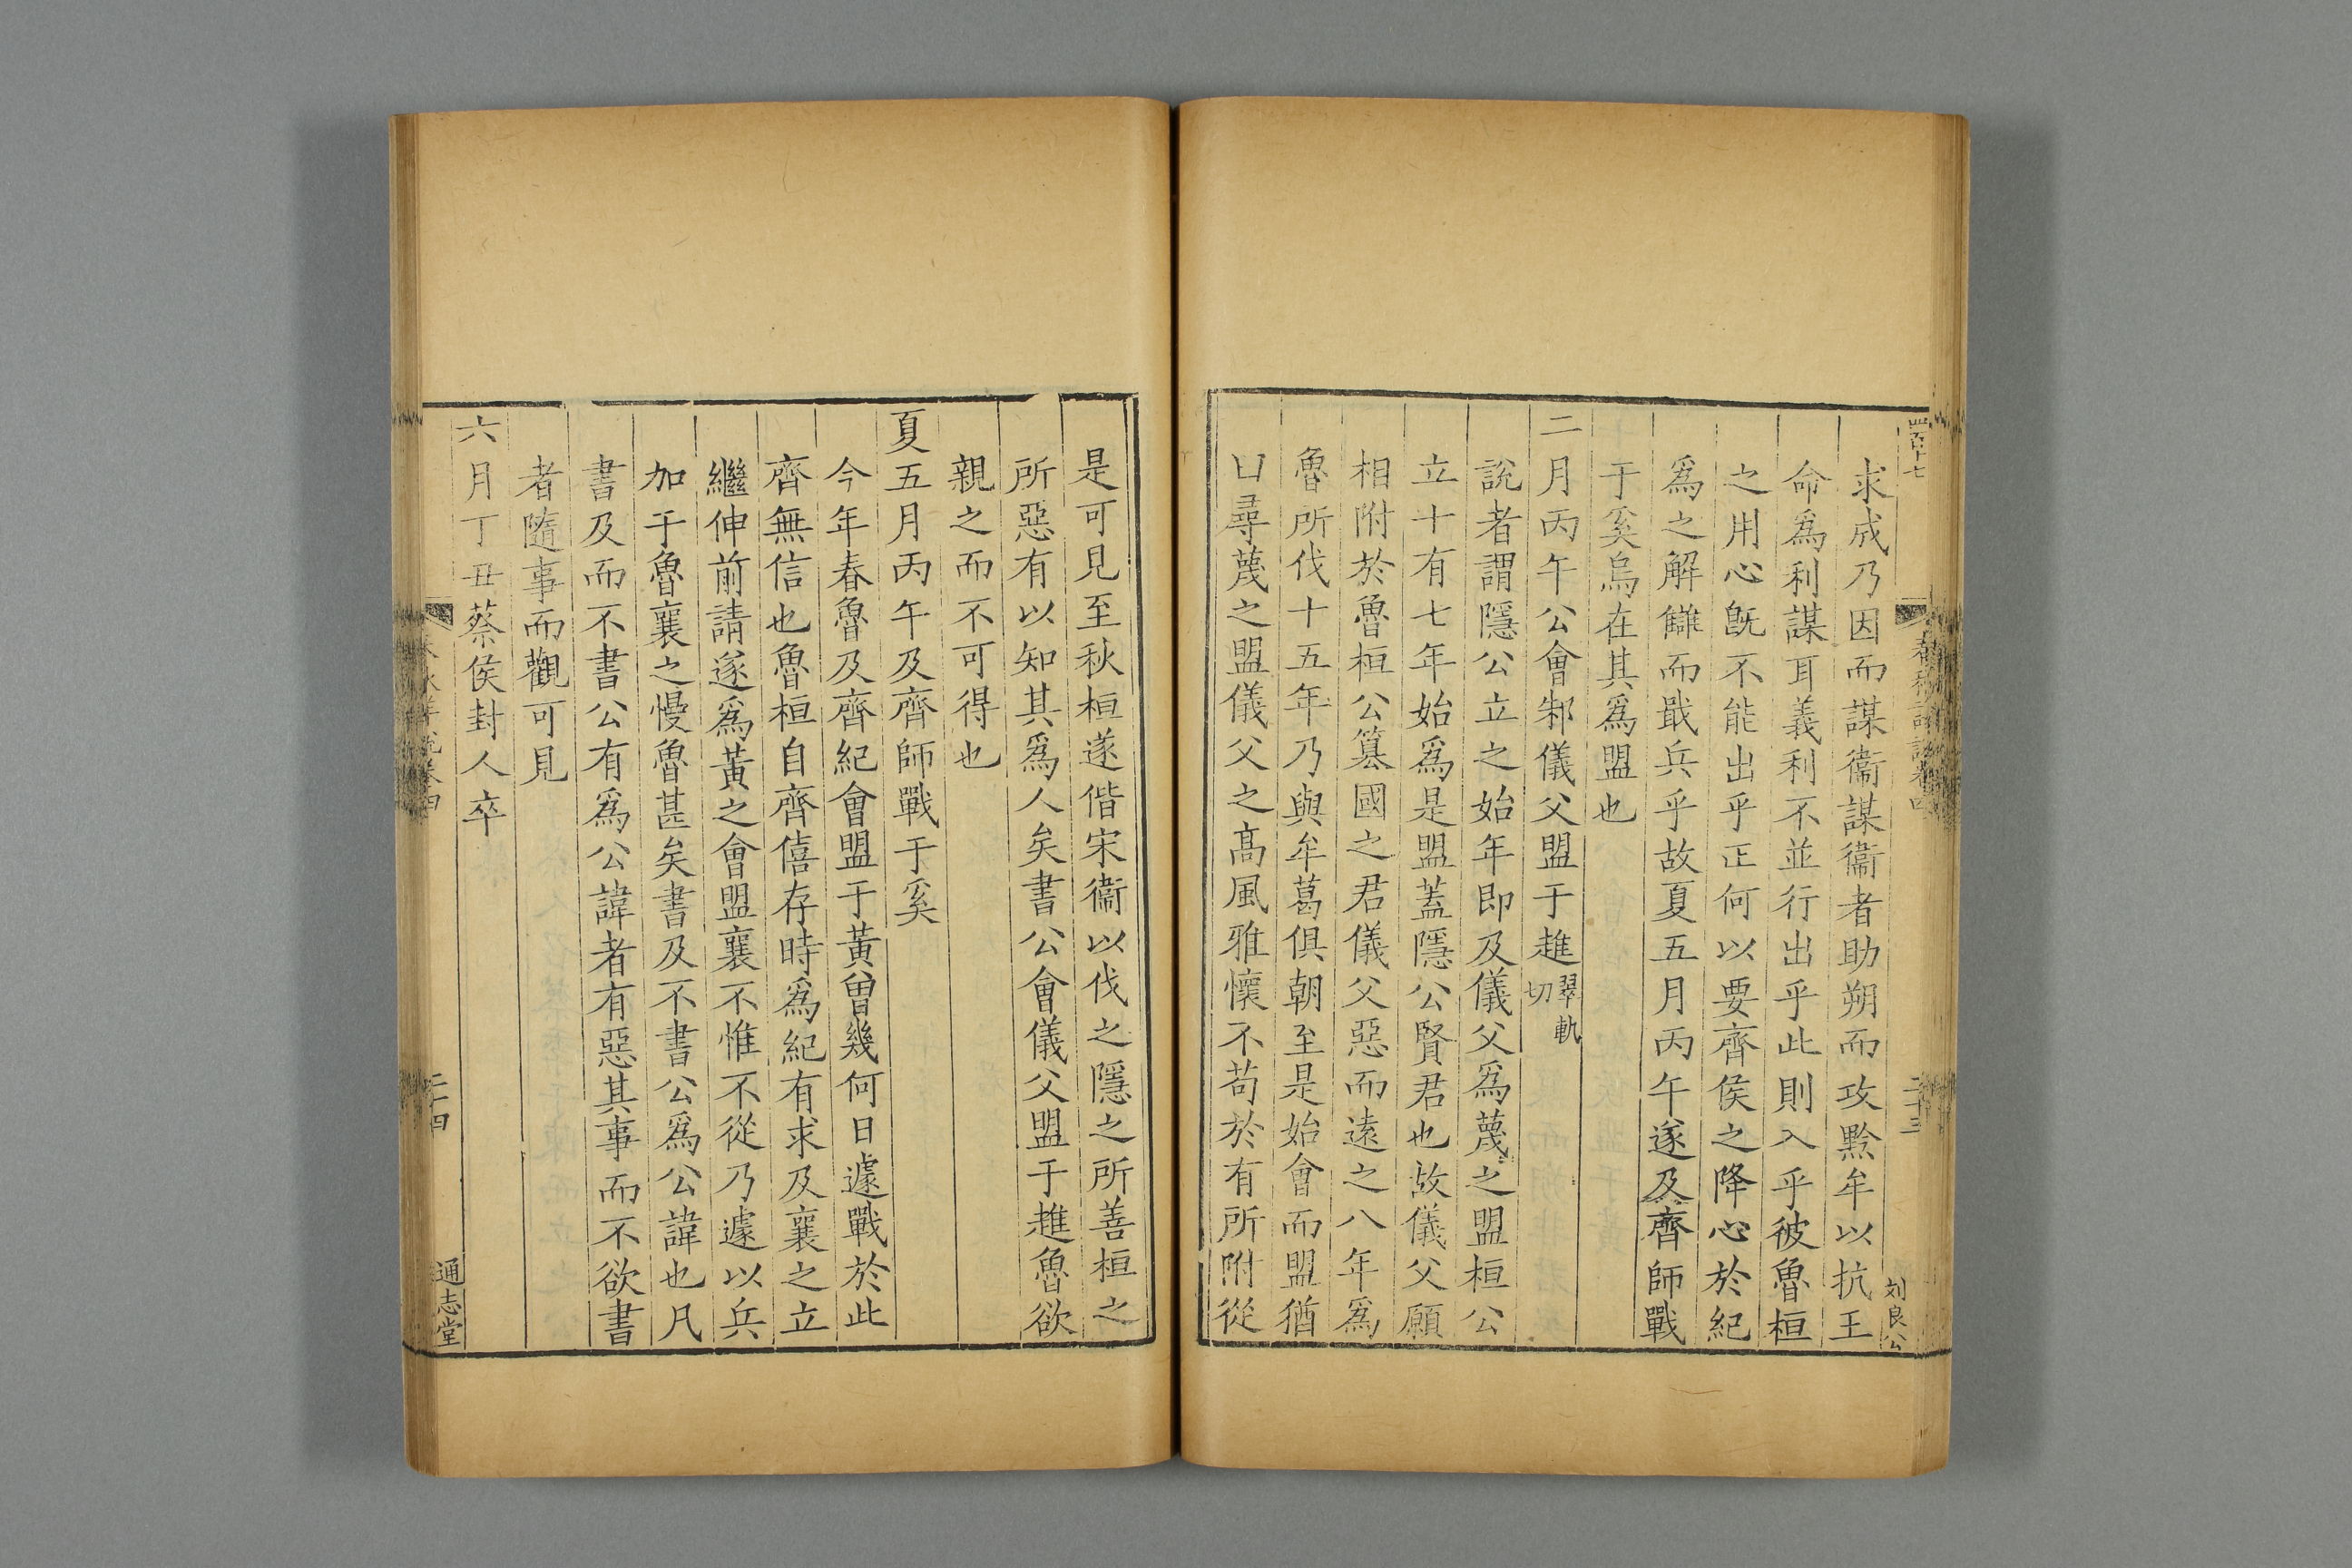 求成乃因而謀衞謀衞者助朔而攻黔牟以抗王
命爲利謀耳義利不並行出乎此則入乎彼魯桓
之用心旣不能出乎正何以要齊侯之降心於紀
爲之解讎而戢兵乎故夏五月丙午遂及齊師戰
于奚烏在其爲盟也
二月丙午公會邾儀父盟于趡翠軌切
說者謂隱公立之始年即及儀父爲蔑之盟桓公
立十有七年始爲是盟蓋隱公賢君也故儀父願
相附於魯桓公篡國之君儀父惡而遠之八年爲
魯所伐十五年乃與牟葛俱朝至是始會而盟猶
曰尋蔑之盟儀父之髙風雅懷不苟於有所附從
是可見至秋桓遂偕宋衞以伐之隱之所善桓之
所惡有以知其爲人矣書公會儀父盟于趡魯欲
親之而不可得也
夏五月丙午及齊師戰于奚
今年春魯及齊紀會盟于黃曾幾何日遽戰於此
齊無信也魯桓自齊僖存時爲紀有求及襄之立
繼伸前請遂爲黃之會盟襄不惟不從乃遽以兵
加于魯襄之慢魯甚矣書及不書公爲公諱也凡
書及而不書公有爲公諱者有惡其事而不欲書
者隨事而觀可見
六月丁丑蔡侯封人卒
二十四
通志堂